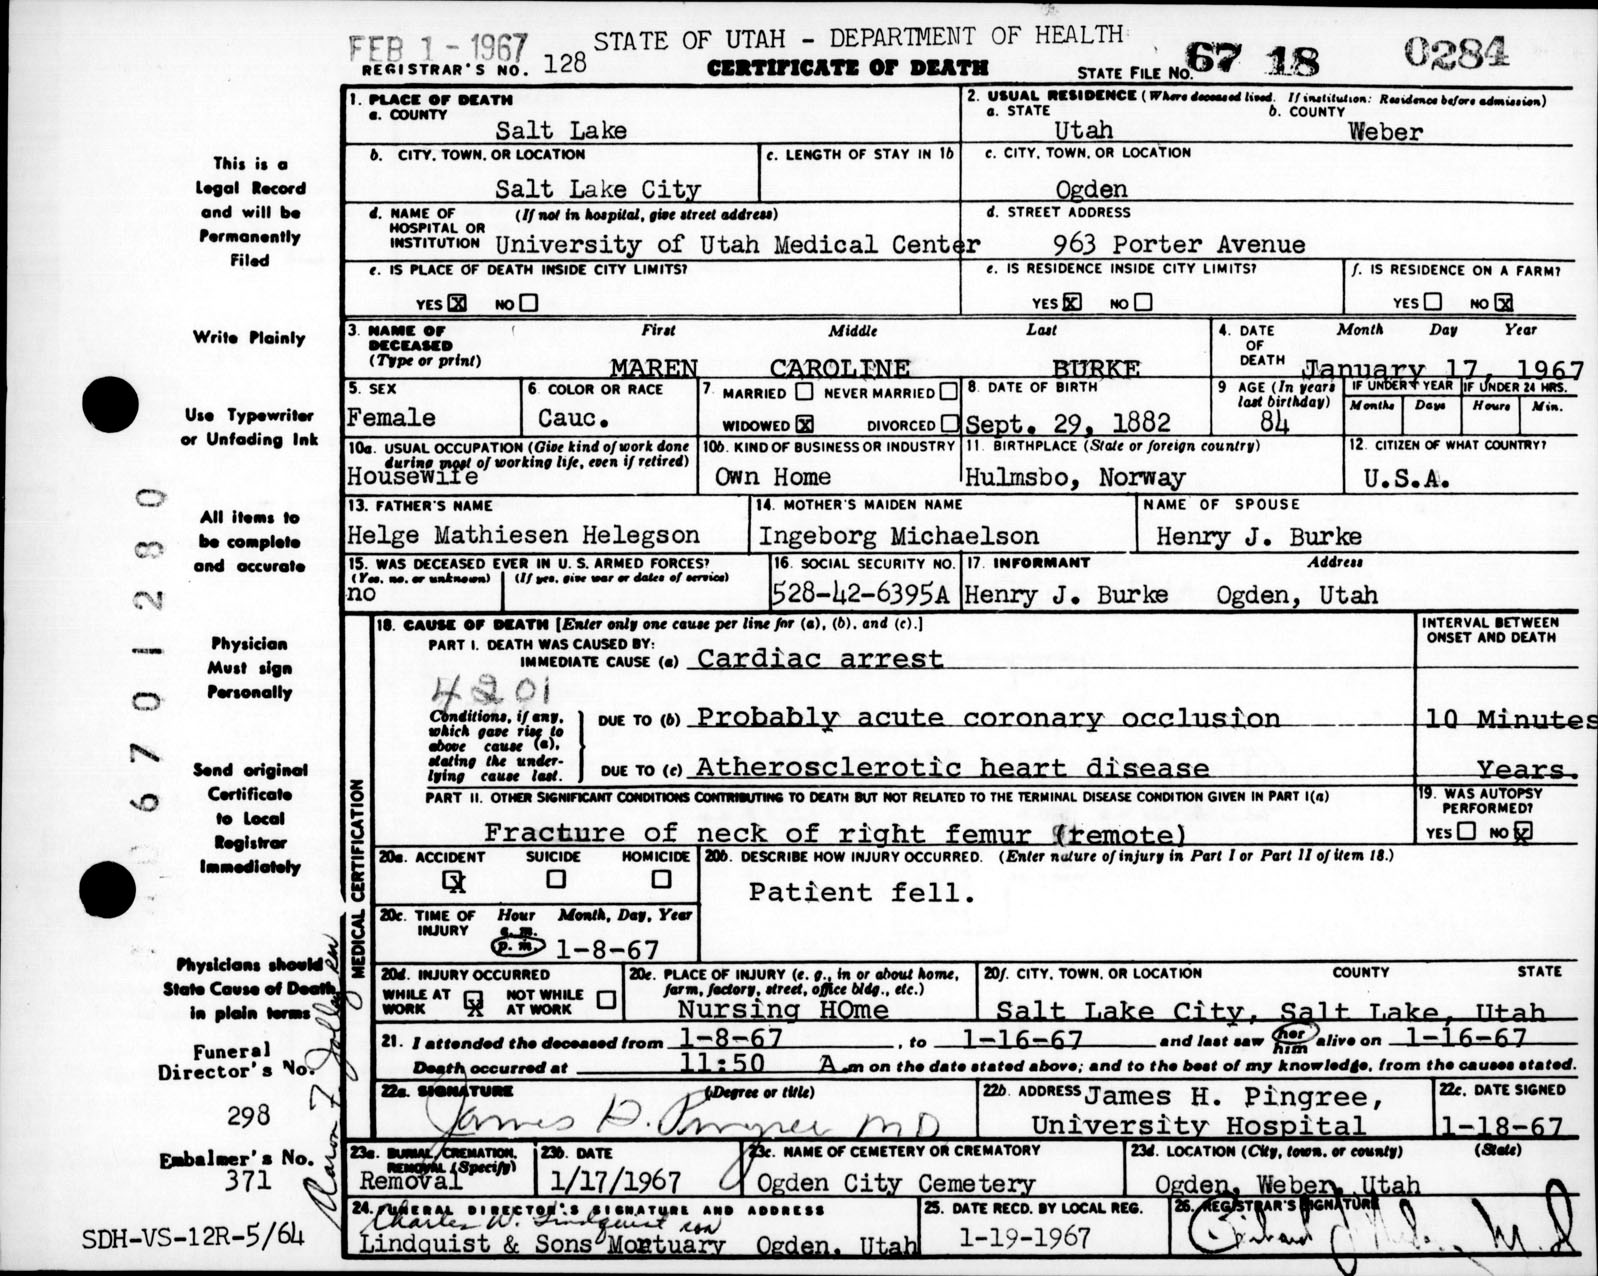 FEB 1 - 1967
STATE OF UTAH - DEPARTMENT OF HEALTH
REGISTRAR'S NO. 128
CERTIFICATE OF DEATH
STATE FILE NO. 67 18 0284
1. PLACE OF DEATH
a. COUNTY
Salt Lake
2. USUAL RESIDENCE (Where deceased lived. If institution: Residence before admission)
a. STATE b. COUNTY
Utah Weber
b. CITY, TOWN, OR LOCATION
Salt Lake City
c. LENGTH OF STAY IN 1b
c. CITY, TOWN, OR LOCATION
Ogden
d. NAME OF HOSPITAL OR INSTITUTION (If not in hospital, give street address)
University of Utah Medical Center
d. STREET ADDRESS
963 Porter Avenue
e. IS PLACE OF DEATH INSIDE CITY LIMITS?
YES X NO
e. IS RESIDENCE INSIDE CITY LIMITS?
YES X NO
f. IS RESIDENCE ON A FARM?
YES NO X
3. NAME OF DECEASED (Type or print)
First Middle Last
MAREN CAROLINE BURKE
4. DATE OF DEATH
Month Day Year
January 17, 1967
5. SEX
Female
6. COLOR OR RACE
Cauc.
7. MARRIED NEVER MARRIED
WIDOWED X DIVORCED
8. DATE OF BIRTH
Sept. 29, 1882
9 AGE (In years last birthday)
84
IF UNDER 1 YEAR
Months Days
IF UNDER 24 HRS.
Hours Min.
10a. USUAL OCCUPATION (Give kind of work done during most of working life, even if retired)
Housewife
10b. KIND OF BUSINESS OR INDUSTRY
Own Home
11. BIRTHPLACE (State or foreign country)
Hulmsbo, Norway
12. CITIZEN OF WHAT COUNTRY?
U.S.A.
13. FATHER'S NAME
Helge Mathiesen Helegson
14. MOTHER'S MAIDEN NAME
Ingeborg Michaelson
NAME OF SPOUSE
Henry J. Burke
15. WAS DECEASED EVER IN U. S. ARMED FORCES?
(Yes, no, or unknown) (If yes, give war or dates of service)
no
16. SOCIAL SECURITY NO.
528-42-6395A
17. INFORMANT Address
Henry J. Burke Ogden, Utah
MEDICAL CERTIFICATION
18. CAUSE OF DEATH [Enter only one cause per line for (a), (b), and (c).]
INTERVAL BETWEEN ONSET AND DEATH
PART I. DEATH WAS CAUSED BY:
IMMEDIATE CAUSE (a) Cardiac arrest
4201
Conditions, if any, which gave rise to above cause (a), stating the underlying cause last.
DUE TO (b) Probably acute coronary occlusion 10 Minutes
DUE TO (c) Atherosclerotic heart disease Years.
PART II. OTHER SIGNIFICANT CONDITIONS CONTRIBUTING TO DEATH BUT NOT RELATED TO THE TERMINAL DISEASE CONDITION GIVEN IN PART I(a)
Fracture of neck of right femur (remote)
19. WAS AUTOPSY PERFORMED?
YES NO X
20a. ACCIDENT SUICIDE HOMICIDE
X
20b. DESCRIBE HOW INJURY OCCURRED. (Enter nature of injury in Part I or Part II of item 18.)
Patient fell.
20c. TIME OF INJURY
Hour Month, Day, Year
a.m.
p.m. 1-8-67
20d. INJURY OCCURRED
WHILE AT WORK X NOT WHILE AT WORK
20e. PLACE OF INJURY (e. g., in or about home, farm, factory, street, office bldg., etc.)
Nursing HOme
20f. CITY, TOWN, OR LOCATION COUNTY STATE
Salt Lake City, Salt Lake, Utah
21. I attended the deceased from 1-8-67, to 1-16-67 and last saw her him alive on 1-16-67
Death occurred at 11:50 A.m on the date stated above; and to the best of my knowledge, from the causes stated.
22a. SIGNATURE (Degree or title)
James H. Pingree MD
22b. ADDRESS James H. Pingree,
University Hospital
22c. DATE SIGNED
1-18-67
23a. BURIAL, CREMATION, REMOVAL (Specify)
Removal
23b. DATE
1/17/1967
23c. NAME OF CEMETERY OR CREMATORY
Ogden City Cemetery
23d. LOCATION (City, town, or county) (State)
Ogden, Weber, Utah
24. FUNERAL DIRECTOR'S SIGNATURE AND ADDRESS
Charles W. Lindquist
Lindquist & Sons Mortuary Ogden, Utah
25. DATE RECD. BY LOCAL REG.
1-19-1967
26. REGISTRAR'S SIGNATURE
This is a
Legal Record
and will be
Permanently
Filed
Write Plainly
Use Typewriter
or Unfading Ink
All items to
be complete
and accurate
Physician
Must sign
Personally
Send original
Certificate
to Local
Registrar
Immediately
Physicians should
State Cause of Death
in plain terms
Funeral
Director's No.
298
Embalmer's No.
371
SDH-VS-12R-5/64
6701280